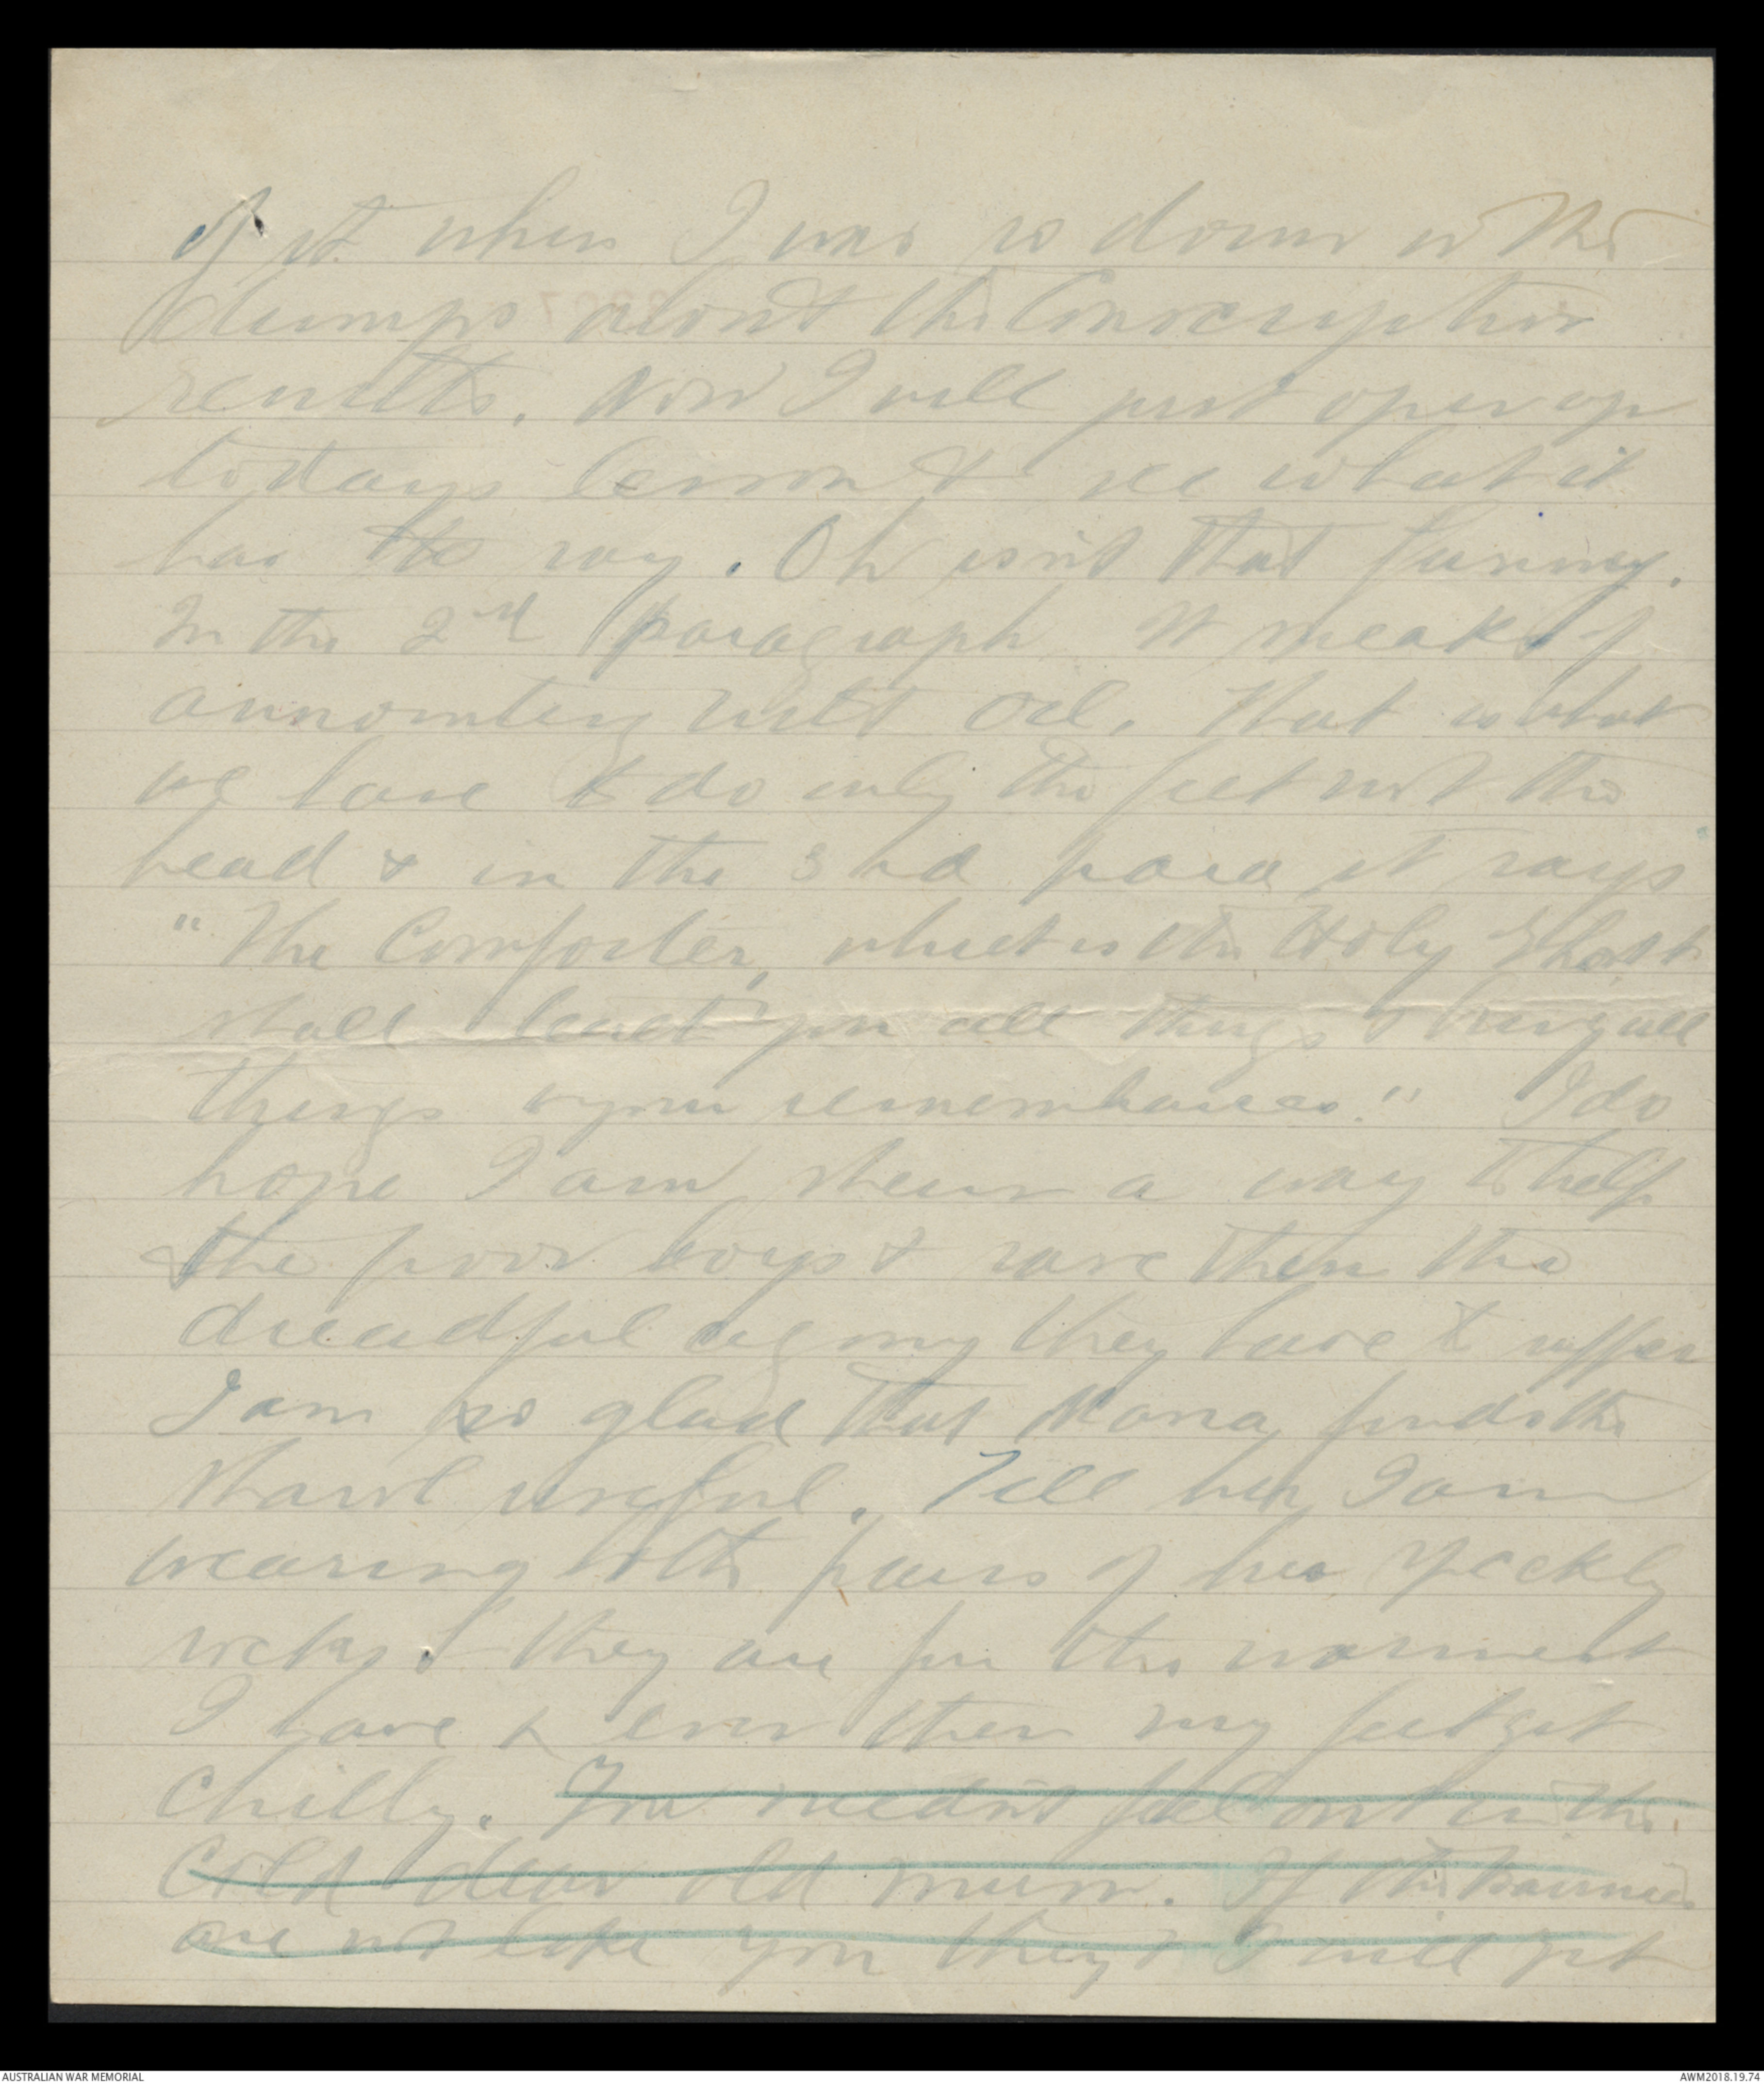 of it when I was so down in the
dumps about the Conscription
results. Now I will just open up
todays lesson & see what it
has to say. Oh isn't that funny.
In the 2nd paragraph it speaks of
annointing with oil. That is what
we have to do only the feet not the
head & in the 3rd para it says
"The Comforter, which is the Holy Ghost
shall teach you all things & bring all
things to your remembrance." I do
hope I am shewn a way to help
the poor boys & save them the
dreadful agony they have to suffer
I am so glad that Mona finds the
shawl useful. Tell her I am
wearing both pairs of her speckly
socks & they are far the warmest
I have & even then my feet get
chilly. You needn't feel out in the
cold dear old mum. If the
are not like you they & I will get
AUSTRALIAN WAR MEMORIAL
AWM2018.19.74